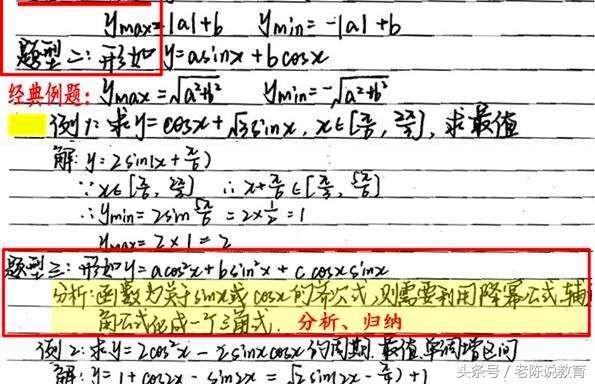 ymax=|a|+b ymin=-|a|+b
题型二:形如 y=asinx+bcosx
经典例题: ymax=√a²+b² ymin=-√a²+b²
例1:求y=cosx+√3sinx, x∈[π/6, 2π/3], 求最值
解:y=2sin(x+π/6)
∵x∈[π/6, 2π/3] ∴x+π/6∈[π/3, 5π/6]
∴ymin=2sin5π/6=2×1/2=1
ymax=2×1=2
题型三:形如y=acos²x+bsin²x+ccosxsinx
分析:函数为关于sinx或cosx的齐次式,则需要利用降幂公式,辅
角公式化成一个三角式. 分析、归纳
例2:求y=2cos²x-2sinxcosx的周期,最值,单调增区间
解:y=1+cos2x-sin2x=√2sin(2x-
)+1
头条号 / 老陈说教育